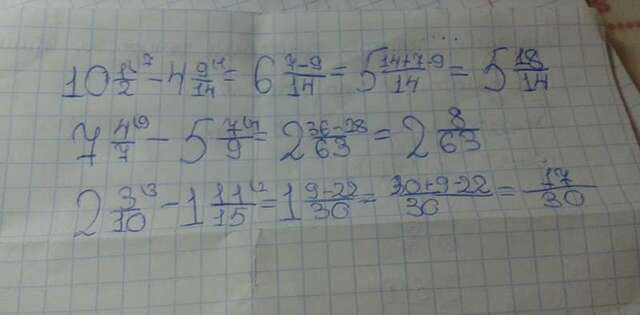 10 1/2 ⁷ - 4 9/14 ¹ = 6 7-9/14 = 5 14+7-9/14 = 5 12/14
7 4/7 ⁹ - 5 7/9 ⁷ = 2 36-28/63 = 2 8/63
2 3/10 ³ - 1 11/15 ² = 1 9-22/30 = 30+9-22/30 = 17/30